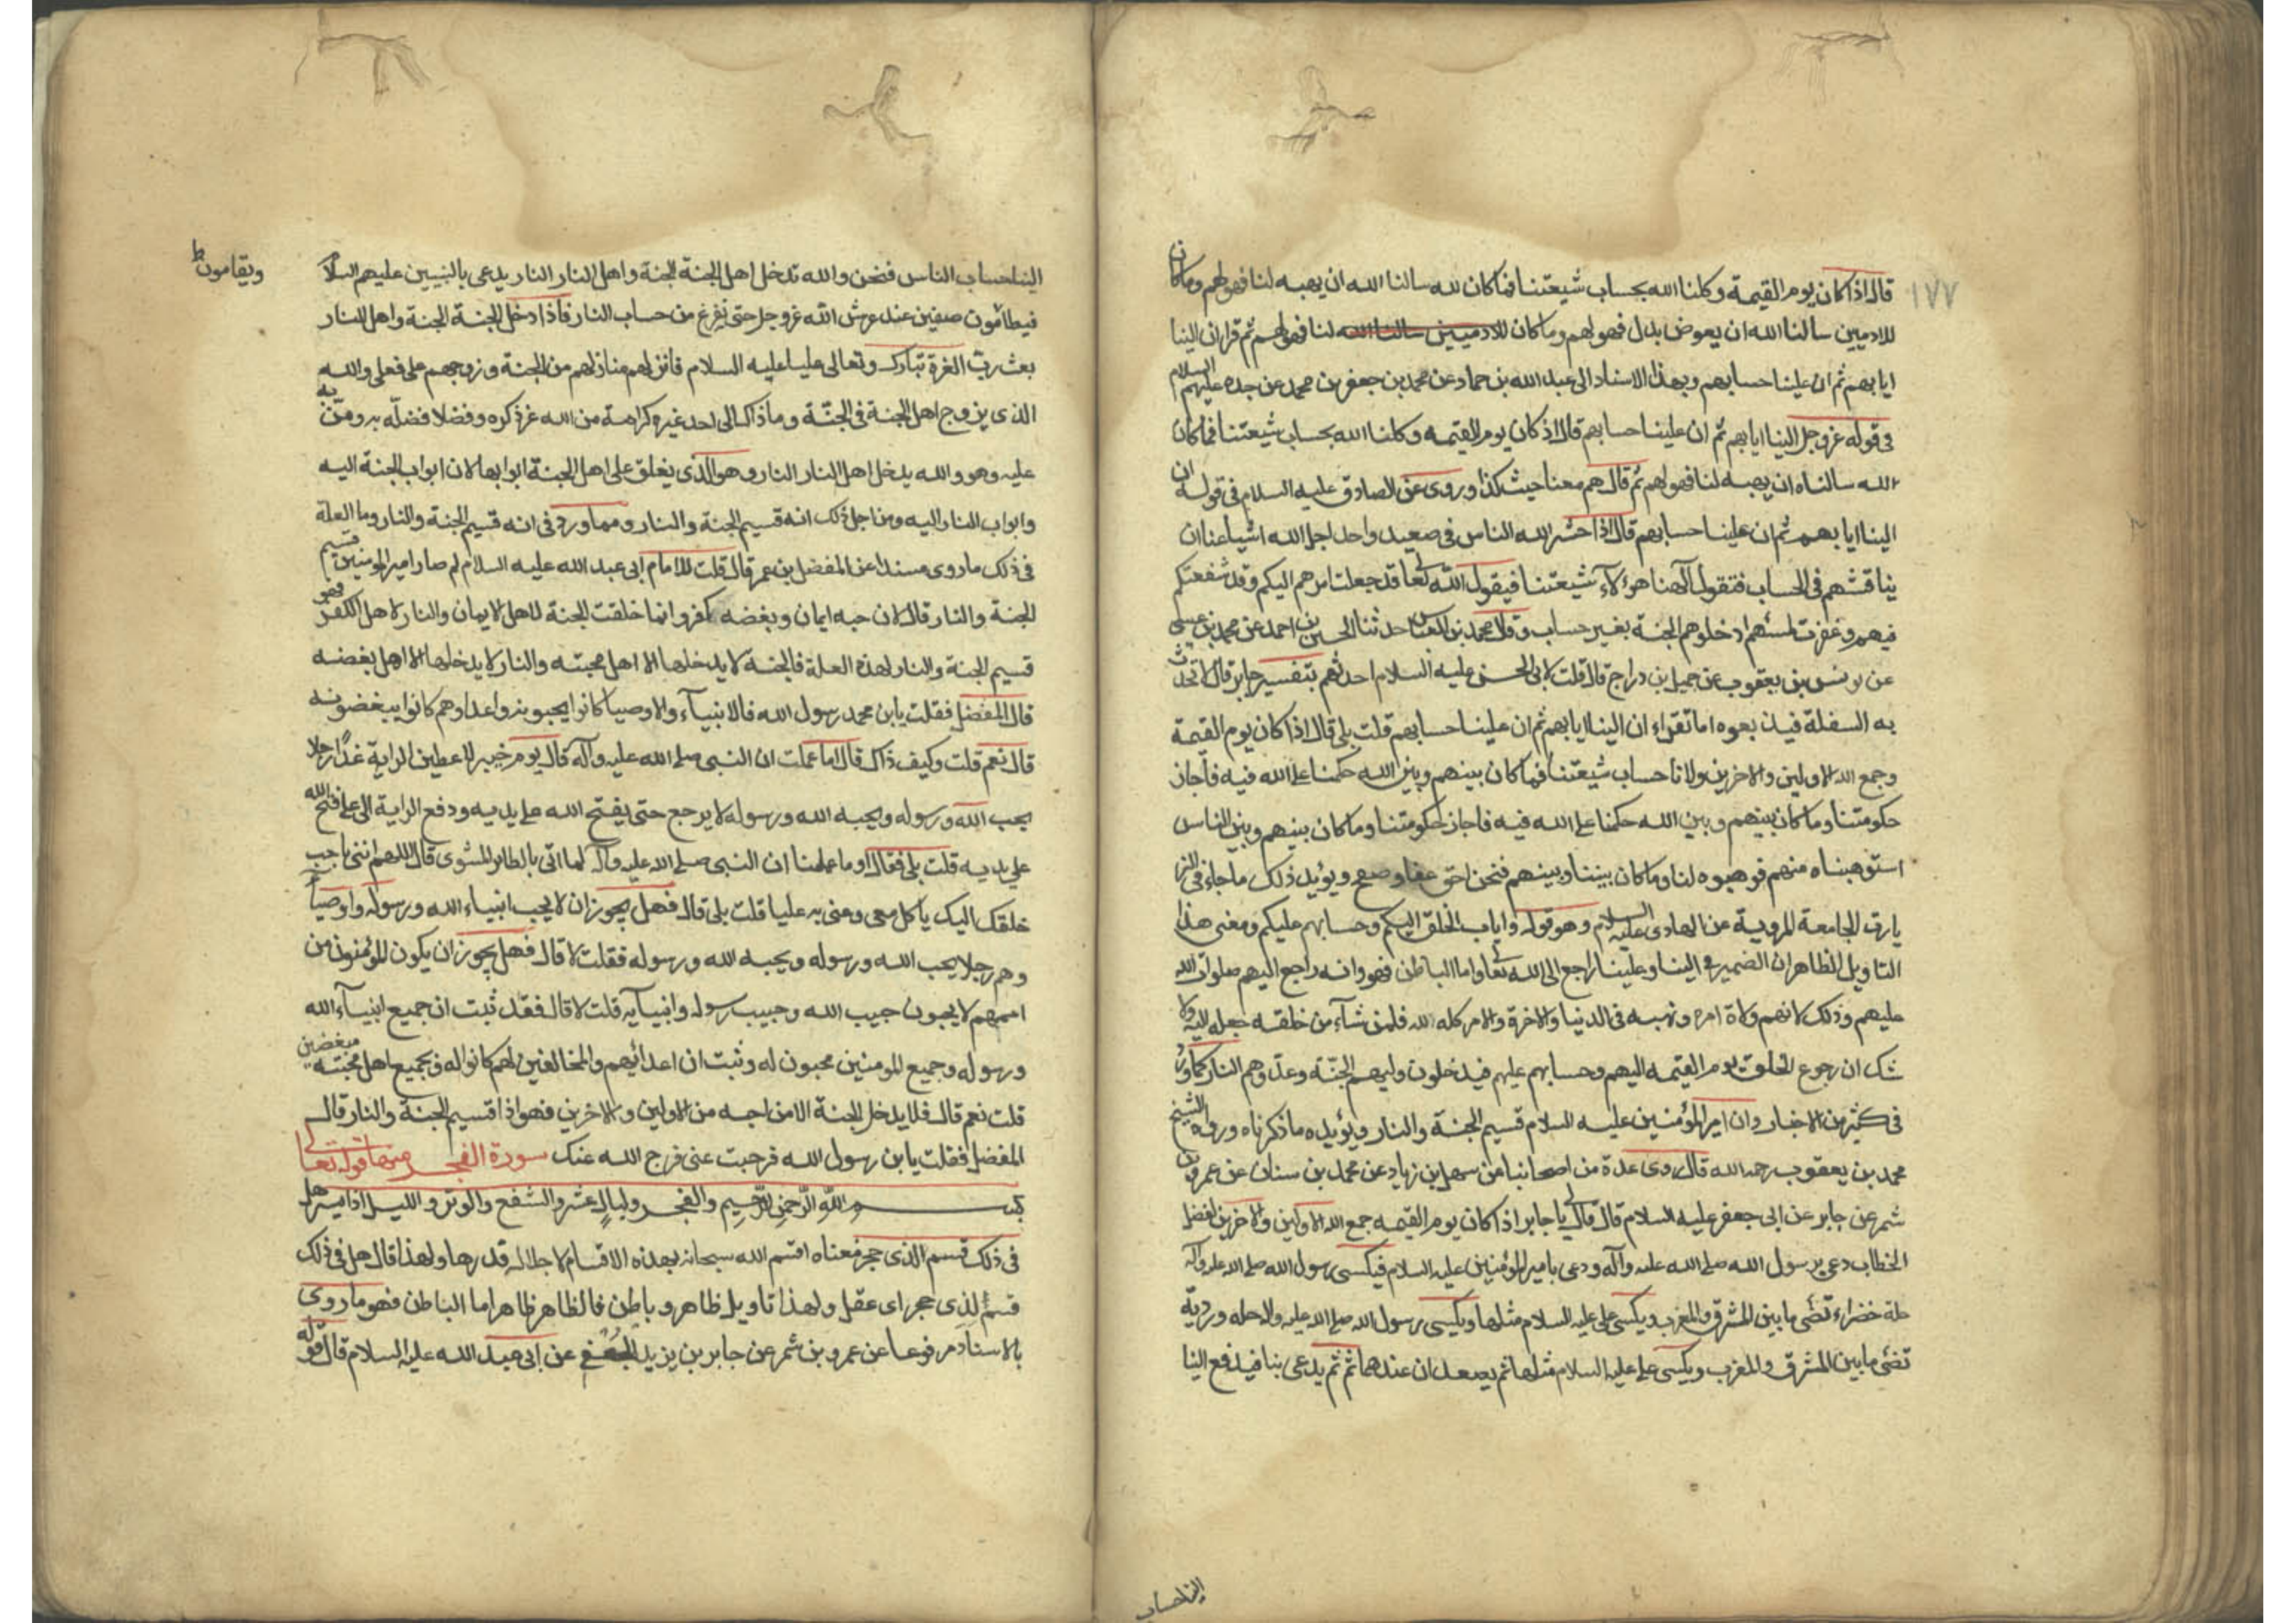 ١٧٧
قال اذا كان يوم القيمة وكلنا الله بحساب شيعتنا فما كان لله سالنا الله ان يهبه لنا فهو لهم وما كان
للادميين سالنا الله ان يعوض بدل فهو لهم وما كان للادميين سالنا الله لنا فهو لهم ثم قرا ان الينا
ايابهم ثم ان علينا حسابهم وبهذا الاسناد الى عبد الله بن حماد عن محمد بن جعفر بن محمد عن جده عليهم السلام
فى قوله عز وجل الينا ايابهم ثم ان علينا حسابهم قال اذ كان يوم القيمه وكلنا الله بحساب شيعتنا فما كان
الله سالناه ان يهبه لنا فهو لهم ثم قال هم معنا حيث كنا وروى عن الصادق عليه السلام فى قوله ان
الينا ايابهم ثم ان علينا حسابهم قال اذا حشر الله الناس فى صعيد واحد اجل الله اشياعنا ان
يناقشهم فى الحساب فتقول آلهنا هؤلاء شيعتنا فيقول الله تعا قد جعلت امرهم اليكم وقد شفعتكم
فيهم وغفرت لمسئهم ادخلوهم الجنة بغير حساب وقال محمد بن العباس حدثنا الحسين بن احمد عن محمد بن عيسى
عن يونس بن يعقوب عن جميل بن دراج قال قلت لابى الحسن عليه السلام احدثهم بتفسير جابر قال لا تحدث
به السفلة فيذيعوه اما تقراء ان الينا ايابهم ثم ان علينا حسابهم قلت بلى قال اذا كان يوم القيمة
وجمع الله الاولين والاخرين ولانا حساب شيعتنا فما كان بينهم وبين الله حكمنا على الله فيه فاجاز
حكومتنا وما كان بينهم وبين الله حكمنا على الله فيه فاجاز حكومتنا وما كان بينهم وبين الناس
استوهبناه منهم فوهبوه لنا وما كان بيننا وبينهم فنحن احق عفا وصفح ويؤيد ذلك ما جاء فى الز
يارت الجامعة المروية عن الهادى عليه السلام وهو قوله واياب الخلق اليكم وحسابهم عليكم ومعنى هذا
التاويل الظاهر ان الضمير فى الينا وعلينا راجع الى الله تعا واما الباطن فهو وانه راجع اليهم صلوات الله
عليهم وذلك لانهم ولاة امره ونهيه فى الدنيا والاخرة والامر كله لله فلمن شآء من خلقه جعله اليه ولا
شك ان رجوع الخلق يوم القيمه اليهم وحسابهم عليهم فيدخلون وليهم الجنّة وعدوهم النار كما ورد
فى كثير من الاخبار وان امير المؤمنين عليه السلام قسيم الجنة والنار ويؤيده ما ذكرناه ورواه الشيخ
محمد بن يعقوب رحمه الله قال روى عدة من اصحابنا من سهل بن زياد عن محمد بن سنان عن عمرو بن
شمر عن جابر عن ابى جعفر عليه السلام قال قال لى يا جابر اذا كان يوم القيمه جمع الله الاولين والاخرين لفصل
الخطاب دعى برسول الله صلى الله عليه وآله ودعى بامير المؤمنين عليه السلام فيكسى رسول الله صلى الله عليه وآله
حلة خضراء تضى ما بين المشرق والمغرب ويكسى على عليه السلام مثلها ويكسى رسول الله صلى الله عليه وآله حله ورديّة
تضئ ما بين المشرق والمغرب ويكسى على عليه السلام مثلها ثم يصعدان عندهما ثم ثم يدعى بنا فيدفع الينا
الينا حساب
الينا حساب الناس فنحن والله ندخل اهل الجنة الجنة واهل النار النار يدعى بالنبيين عليهم السلام
ويقامون ط
فيطامون صفين عند عرش الله عز وجل حتى نفرغ من حساب النار فاذا ادخل الجنة الجنة واهل النار
بعث رب العزة تبارك وتعالى عليا عليه السلام فانزلهم منازلهم من الجنة وزوجهم على فعلى والله
الذى يزوج اهل الجنة فى الجنّة وما ذاك الى احد غيره كرامة من الله عز ذكره وفضلا فضلّه به ومنّ به
عليه وهو والله يدخل اهل النار النار وهو الذى يغلق على اهل الجنة ابوابها لان ابواب الجنة اليه
وابواب النار اليه ومن اجل ذلك انه قسيم الجنة والنار ومما ورد فى انه قسيم الجنة والنار وما العلة
فى ذلك ما روى مسندا عن المفضل بن عمر قال قلت للامام ابى عبد الله عليه السلام لم صار امير المومنين قسيم
الجنة والنار قال لان حبه ايمان وبغضه كفر وانما خلقت الجنة لاهل الايمان والنار لاهل الكفر فهو
قسيم الجنة والنار لهذه العلة فالجنة لا يدخلها الا اهل محبته والنار لا يدخلها الا اهل بغضه
قال المفضل فقلت يابن محمد رسول الله فالانبيآء والاوصيا كانوا يحبونه واعداوهم كانوا يبغضونه
قال نعم قلت وكيف ذاك قال اما علمت ان النبى صلى الله عليه وآله قال يوم خيبر لاعطين الراية غدًا رجلا
يحب الله ورسوله ويحبه الله ورسوله لا يرجع حتى يفتح الله على يديه ودفع الراية الى على ففتح الله
على يديه قلت بلى فقال او ما علمنا ان النبى صلى الله عليه وآله لما اتى بالطاير المشوى قال اللهم ائتنى باحب
خلقك اليك ياكل معى وعنى به عليا قلت بلى قال فهل يجوز ان لا يحب انبياء الله ورسوله واوصيآ
وهم رجلا يحب الله ورسوله ويحبه الله ورسوله فقلت لا قال فهل يجوز ان يكون المؤمنون من
اممهم لا يحبون حبيب الله وحبيب رسوله وانبيآيه قلت لا قال فقد ثبت ان جميع انبيآء الله
ورسوله وجميع المومنين محبون له وثبت ان اعدائهم والمخالفين لهم كانوا له ولجميع اهل محبته مبغضين
قلت نعم قال فلا يدخل الجنة الا من احبه من الاولين والاخرين فهو اذا قسيم الجنة والنار قال
المفضل فقلت يابن رسول الله فرجت عنى فرج الله عنك سورة الفجر منها قوله تعالى
بسم الله الرّحمن الرّحيم والفجر وليالٍ عشر والشفع والوتر والليل اذا يسر هل
فى ذلك قسم الذى حجر معناه اقسم الله سبحانه بهذه الاقسام لاجلاله قدرها ولهذا قال هل فى ذلك
قسمٌ لذى حجر اى عقل ولهذا تاويل ظاهر وباطن فالظاهر ظاهر اما الباطن فهو ما روى
بالاسناد مرفوعا عن عمرو بن شمر عن جابر بن يزيد الجعفى عن ابى عبد الله عليه السلام قال قوله